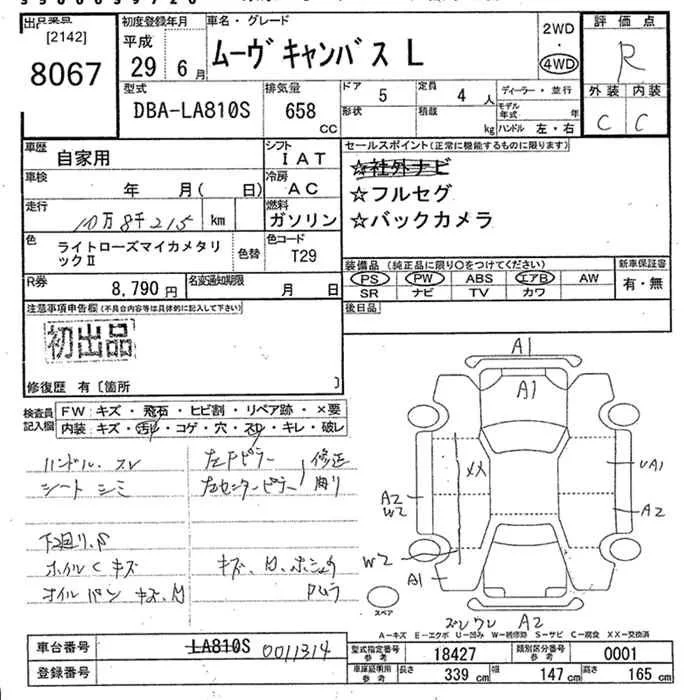 出品票
[2142]
8067
初度登録年月
平成
29 6月
車名・グレード
ムーヴキャンバス L
2WD
・
4WD
評価点
R
外装 内装
C C
型式
DBA-LA810S
排気量
658
CC
ドア
5
定員
4 人
ディーラー・並行
モデル年式 年
形状
積載
kg
ハンドル 左・右
車歴
自家用
シフト
IAT
車検
年 月( 日)
冷房
AC
走行
10万8千215 km
燃料
ガソリン
色
ライトローズマイカメタリックⅡ
色替
色コード
T29
R券
8,790円
名変通知期限
月 日
セールスポイント(正常に機能するものに限ります)
☆社外ナビ
☆フルセグ
☆バックカメラ
装備品 (純正品に限り○をつけてください)
PS PW ABS エアB AW
SR ナビ TV カワ
新車保証書
有・無
後日品
注意事項申告欄(不具合内容等は具体的に記入して下さい)
初出品
修復歴 有〔箇所 〕
検査員記入欄
FW:キズ・飛石・ヒビ割・リペア跡・×要
内装:キズ・汚れ・コゲ・穴・スレ・キレ・破レ
ハンドル.スレ
シート シミ
下廻り.サ
ホイルCキズ
オイルパン キズ、凹
左Fピラー
左センターピラー
修正
有り
キズ、凹、
A1
A1
XX
UA1
A2
W2
A2
W2
A1
A2
スペア
A-キズ E-エクボ U-凹み W-補修跡 S-サビ C-腐食 XX-交換済
車台番号
LA810S 0011314
登録番号
型式指定番号
参考
18427
類別区分番号
参考
0001
車庫証明用
参考
長さ
339 cm
幅
147 cm
高さ
165 cm